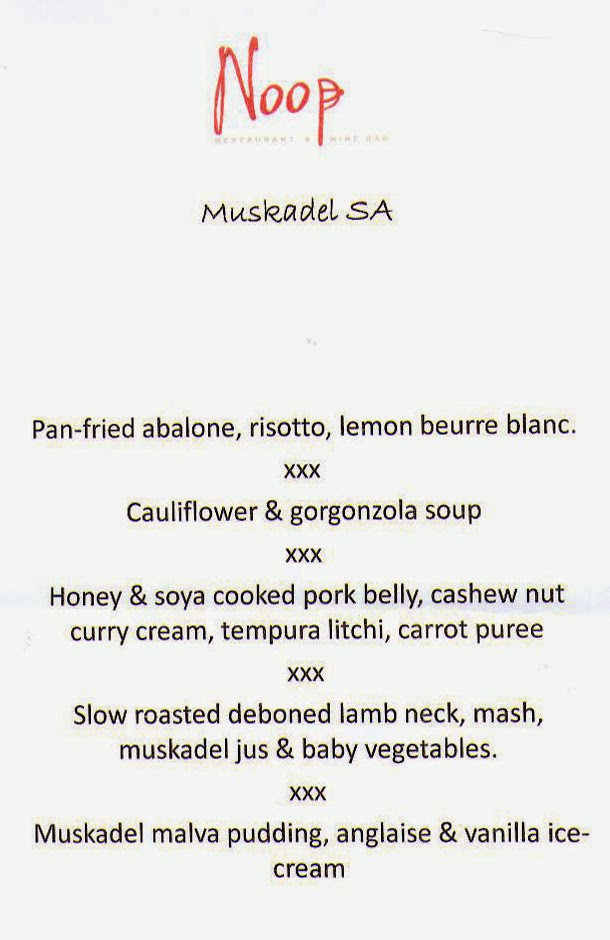 Noop
RESTAURANT & WINE BAR
Muskadel SA
Pan-fried abalone, risotto, lemon beurre blanc.
xxx
Cauliflower & gorgonzola soup
xxx
Honey & soya cooked pork belly, cashew nut
curry cream, tempura litchi, carrot puree
xxx
Slow roasted deboned lamb neck, mash,
muskadel jus & baby vegetables.
xxx
Muskadel malva pudding, anglaise & vanilla ice-
cream